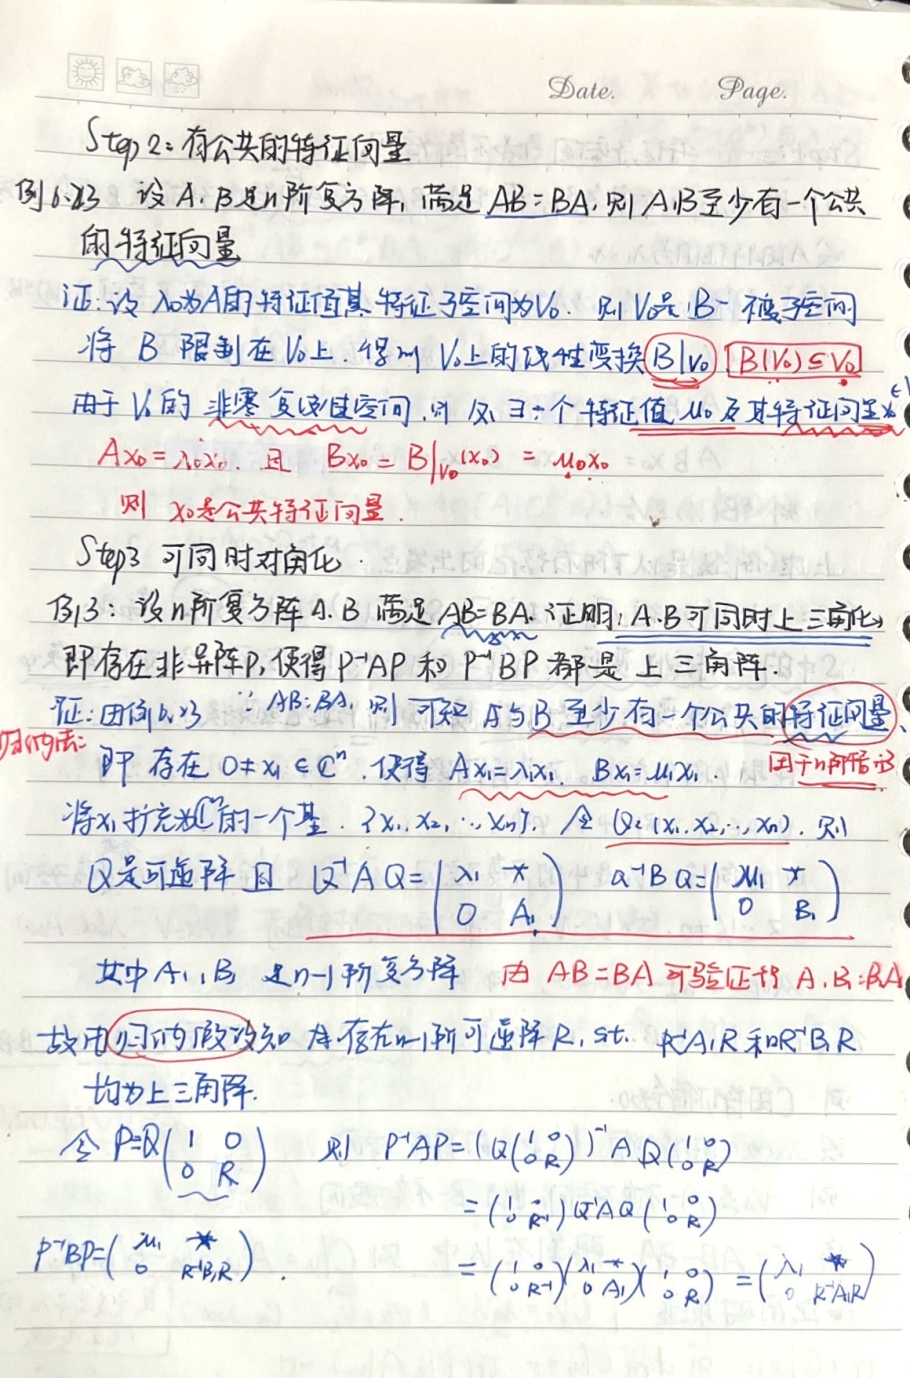 Date. Page.
Step 2: 有公共的特征向量
例6.23 设A.B是n阶复方阵, 满足AB=BA. 则A.B至少有一个公共
的特征向量
证: 设λ₀为A的特征值其特征子空间为V₀. 则V₀是B-不变子空间
将B限制在V₀上. 得到V₀上的线性变换 B|V₀ B(V₀)⊆V₀
由于V₀的非零复线性空间. 则 ∃一个特征值μ₀及其特征向量x₀∈V
Ax₀=λ₀x₀. 且 Bx₀=B|V₀(x₀)=μ₀x₀
则 x₀是公共特征向量.
Step3 可同时对角化.
例3: 设n阶复方阵A.B满足AB=BA. 证明: A.B可同时上三角化,
即存在非异阵P, 使得P⁻¹AP和P⁻¹BP都是上三角阵.
证: 由例6.23 ∵AB=BA, 则可知A与B至少有一个公共的特征向量、
归纳法:
即存在 0≠x₁∈Cⁿ. 使得 Ax₁=λ₁x₁. Bx₁=μ₁x₁.
将x₁扩充为Cⁿ的一个基. {x₁,x₂,…,xₙ}. 令Q=(x₁,x₂,…,xₙ). 则
Q是可逆阵且 Q⁻¹AQ=(λ₁ * 0 A₁) Q⁻¹BQ=(μ₁ * 0 B₁)
其中A₁,B₁是n-1阶复方阵 由AB=BA可验证得A₁B₁=B₁A₁
故由归纳假设知 存在n-1阶可逆阵R, st. R⁻¹A₁R和R⁻¹B₁R
均为上三角阵.
令P=Q(1 0 0 R) 则 P⁻¹AP=(Q(1 0 0 R))⁻¹AQ(1 0 0 R)
=(1 0 0 R⁻¹)Q⁻¹AQ(1 0 0 R)
P⁻¹BP=(μ₁ * 0 R⁻¹B₁R).
=(1 0 0 R⁻¹)(λ₁ * 0 A₁)(1 0 0 R)=(λ₁ * 0 R⁻¹A₁R)